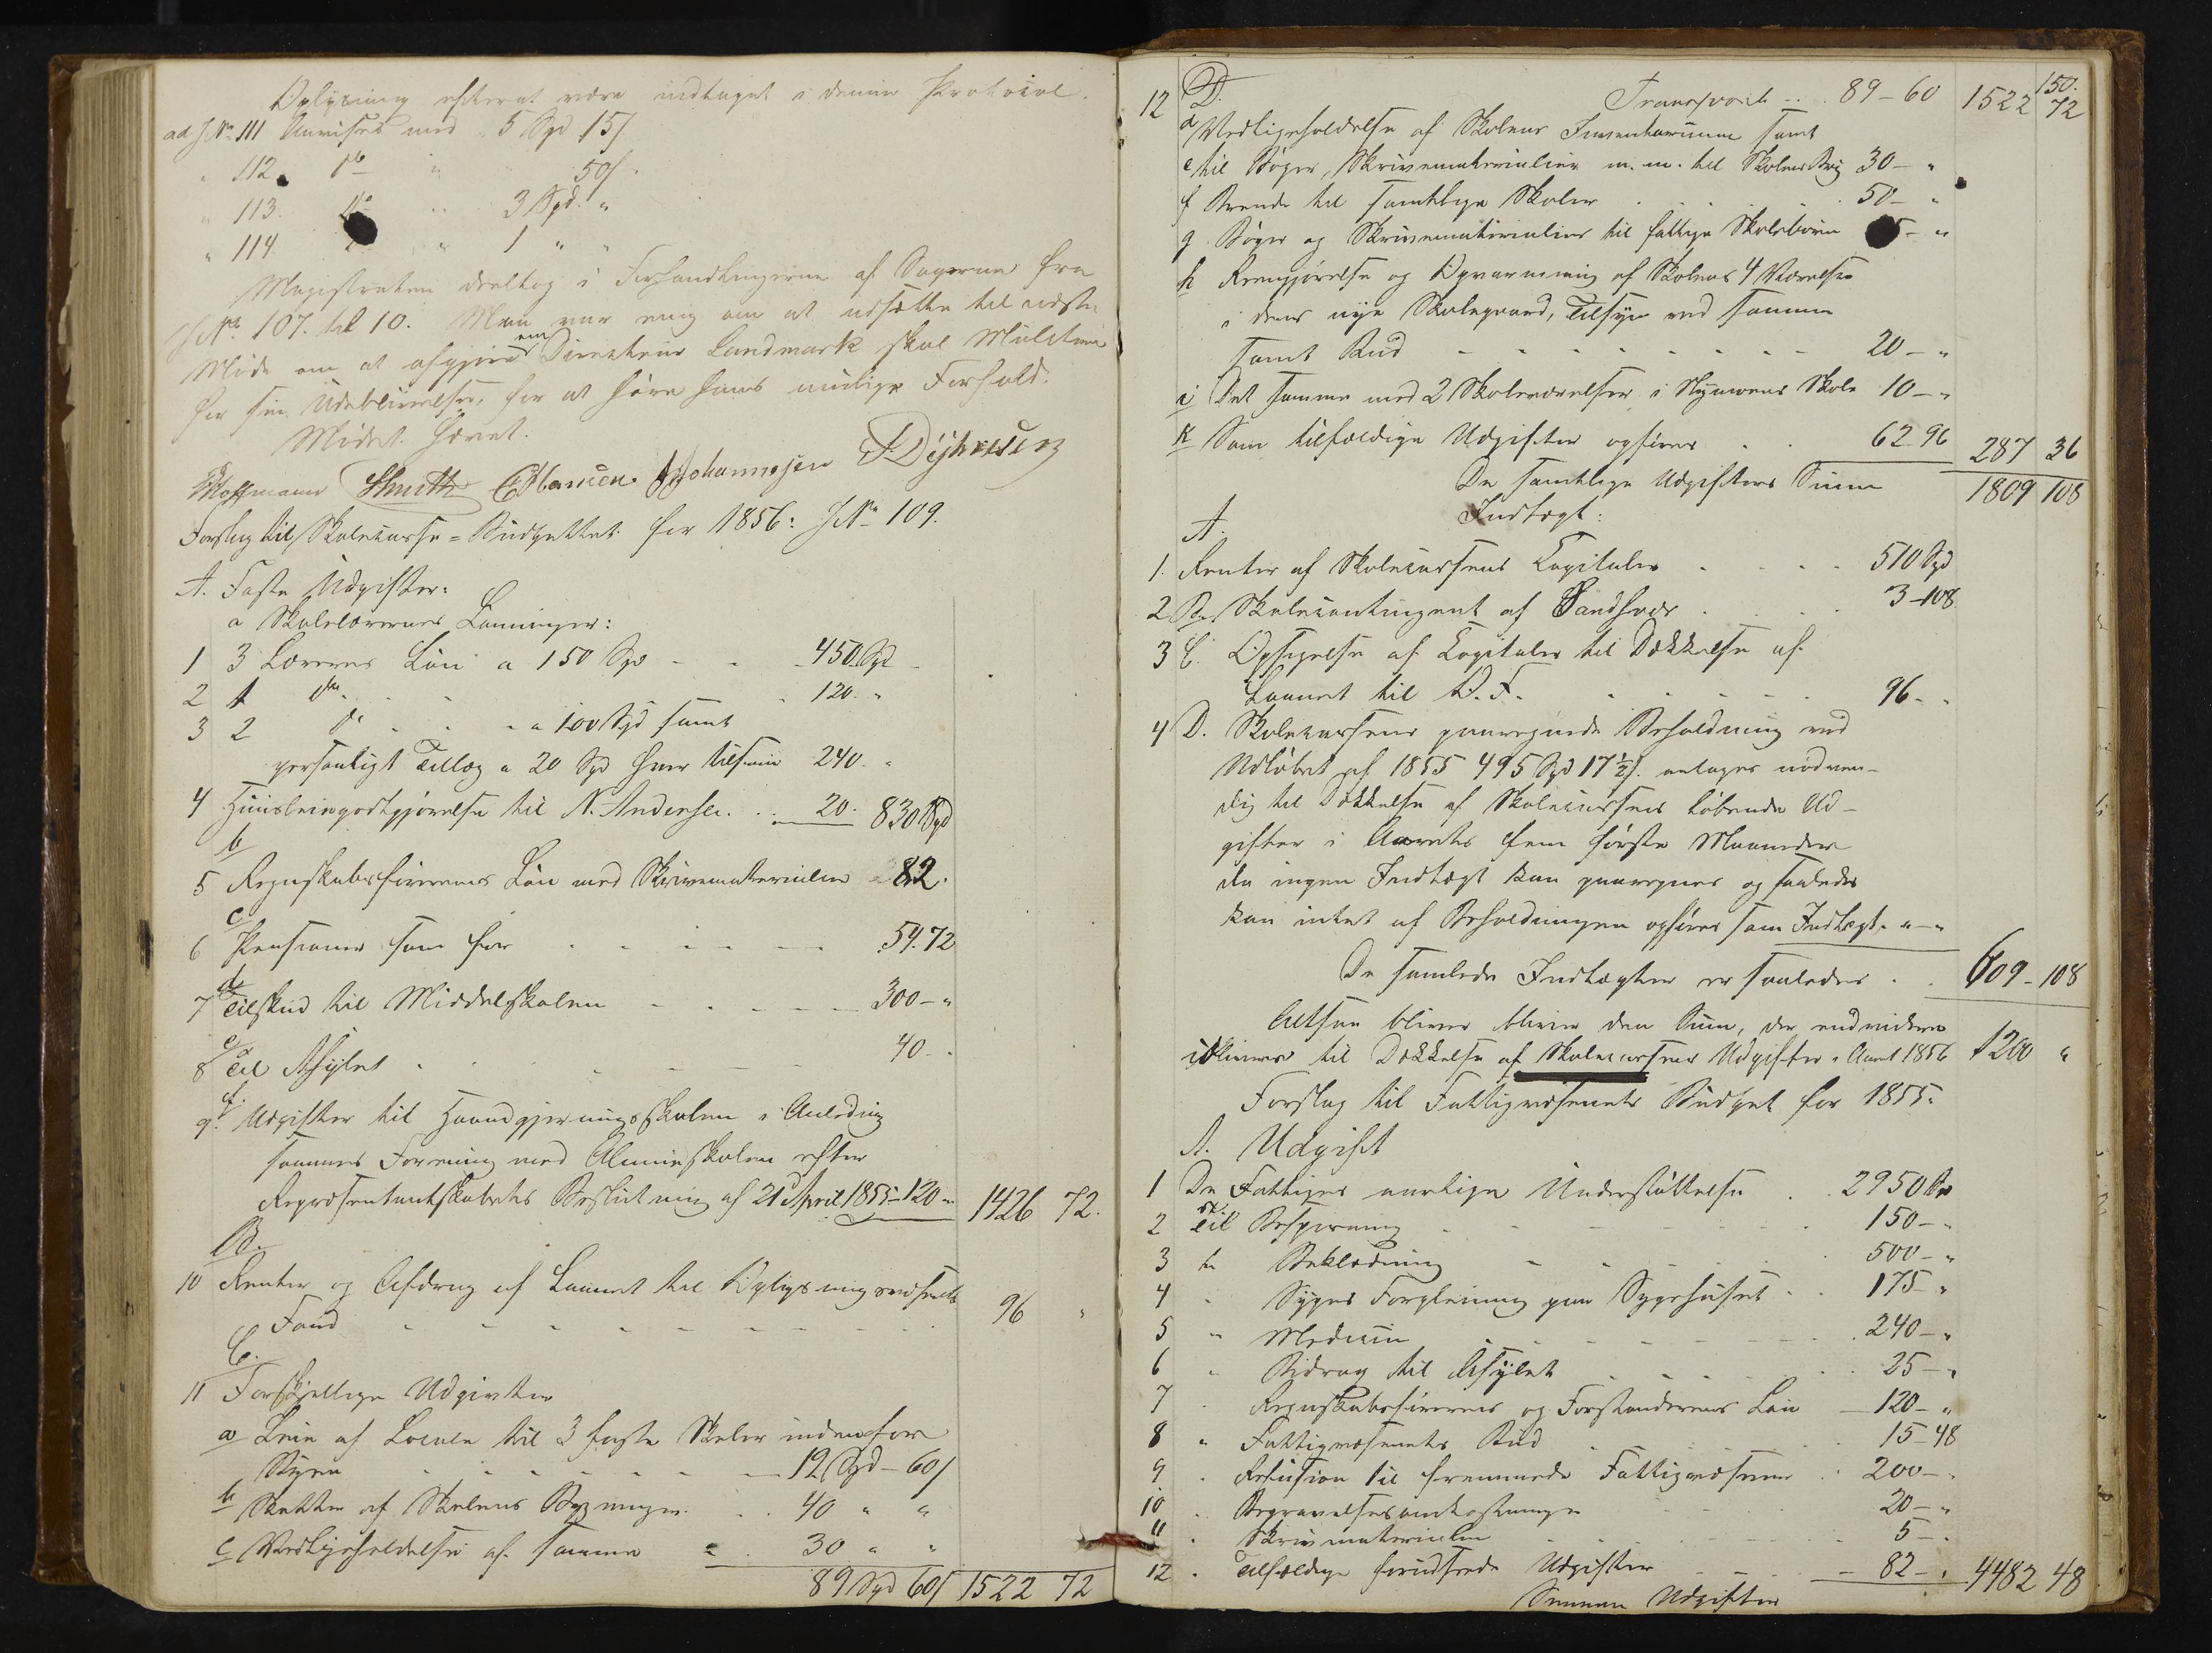 Oplysning efterat være indtaget i denne Protocol.
ad J No. 111 Anvises med 5 Spd 15 s
" 112. do " 50 s.
" 113. do " 3 Spd. "
" 114 " 1 " "
Magistraten deeltog i Forhandlingerne af Sagerne fra
J No. 107. til 10. Man var enig om at udsætte til næste
Møde om at afgjøre om Directeur Landmark skal Mulcteres
for sin Udeblivelse, for at høre hans mulige Forfald.
Mødet hævet.
Hoffmann Smith C Hansen Johannesen
Forslag til Skolecasse-Budgettet for 1856: J No 109.
A. Faste Udgifter:
a Skolelærernes Lønninger:
1 3 Læreres Løn a 150 Spd - - 450 Spd
2 1 do. - - 120. "
3 2 do - - a 100 Spd samt
personligt Tillæg a 20 Spd hver tilsam 240. "
4 Huusleiegodtgjørelse til N. Andersen . . 20. 830 Spd
b
5 Regnskabsførerens Løn med Skrivematerialier 82.
c
6 Pensioner som før - - - - 54.72
d
7 Tilskud til Middelskolen - - - - 300 - "
e
8 Til Asylet - - - - 40 - "
f.
9. Udgifter til Haandgjerningsskolen i Anledning
sammes Forening med Almueskolen efter
Repræsentantskabets Beslutning af 21 April 1855 - 120 - " 1426 72.
B.
10 Renter og Afdrag af Laanet til Oplysningsvæsenets
Fond - - - - - - - - 96 "
C.
11 Forskjellige Udgivter
a Leie af Locale til 3 faste Skoler indenfor
Byen - - - - - - 12 Spd - 60 s
b Skatter af Skolens Bygninger. . . 40 " "
c Vedligeholdelse af samme - . 30 " "
89 Spd 60 s 1522 72
150.
12 D. Transport . . . 89 - 60 1522 72
d Vedligeholdelse af Skolens Inventarium samt
e til Bøger, Skrivematerialier m. m. til Skolens Brug 30 - "
f Brænde til samtlige Skoler . . . . 50 - "
g Bøger og Skrivematerialier til fattige Skolebørn 5 - "
h Reengjørelse og Opvarmning af Skolens 4 Værelser
i dens nye Skolegaard, Tilsyn med samme
samt Bud - - - - - - - - 20 - "
i Det samme med 2 Skoleværelser i Nymoens Skole 10 - "
k Som tilfældige Udgifter opføres . . 62 96 287 36
De samtlige Udgifters Summa 1809 108
Indtægt:
A.
1. Renter af Skolecassens Capitaler - - - - 510 Spd
2 B. Skolecontingent af Sandsvær . . . . 3 - 108
3 C. Opsigelse af Capitaler til Dækkelse af
Laanet til O. F. - - - - - 96 - "
4 D. Skolecassens paaregnede Beholdning ved
Udløbet af 1855 495 Spd 17 ½ s. antages nødven-
dig til Dækkelse af Skolecassens løbende Ud-
gifter i Aarets fem første Maaneder
da ingen Indtægt kan paaregnes og saaledes
kan intet af Beholdningen opføres som Indtægt. " - "
De samlede Indtægter er saaledes . . 609 - 108
Altsaa bliver bliver den Sum, der endvidere
udkræves til Dækkelse af Skolecassens Udgifter i Aaret 1856 1200 "
Forslag til Fattigvæsenets Budget for 1855:
A. Udgift
1 De Fattiges aarlige Understøttelse . . 2950 Spd
2 Til Bespisning - - - - - - 150 - "
3 " Beklædning - - - - 500 - "
4 " Syges Forpleining paa Sygehuset . . 175 - "
5 " Medicin - - - - - - 240 - "
6 " Bidrag til Asylet . . . . 25 - "
7 " Regnskabsførerens og Forstanderens Løn - 120 - "
8 " Fattigvæsenets Bud . . . 15 - 48
9 " Refusion til fremmede Fattigvæsener . . 200 - "
10 " Begravelsesomkostninger 20 - "
11 " Skrivmaterialier . . . . 5 - "
12 " Tilfældige forudsede Udgifter - - - - 82 - " 4482 48
Summa Udgifter